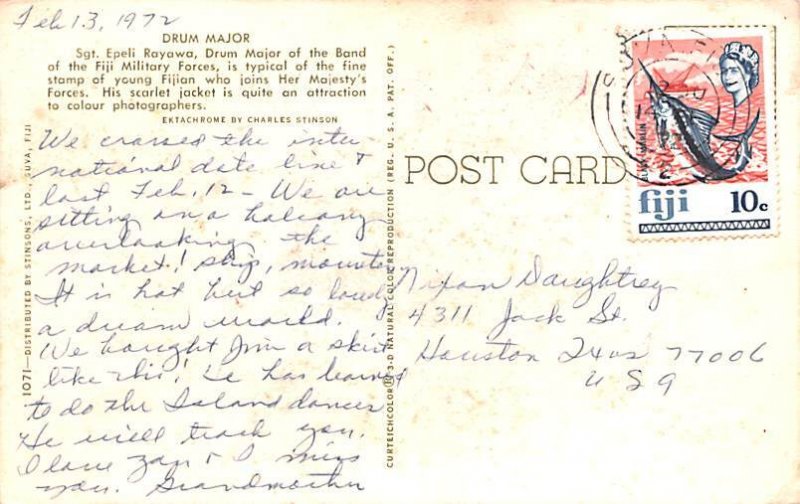 Feb 13, 1972
DRUM MAJOR
Sgt. Epeli Rayawa, Drum Major of the Band
of the Fiji Military Forces, is typical of the fine
stamp of young Fijian who joins Her Majesty's
Forces. His scarlet jacket is quite an attraction
to colour photographers.
EKTACHROME BY CHARLES STINSON
We crossed the inter
national date line &
lost Feb. 12 - We are
sitting on a balcony
overlooking the
market! ship, mounts
It is hot but so lovely
a dream world.
We bought Jim a skirt
like this! He has learned
to do the Island dances
He will teach you.
I love you & I miss
you. Grandmother
1071—DISTRIBUTED BY STINSONS, LTD., SUVA, FIJI
CURTEICHCOLOR® 3-D NATURAL COLOR REPRODUCTION (REG. U. S. A. PAT. OFF.)
POST CARD
SUVA FIJI
BLUE MARLIN
fiji 10c
Nixon Daughtrey
4311 Jack St.
Houston Texas 77006
USA